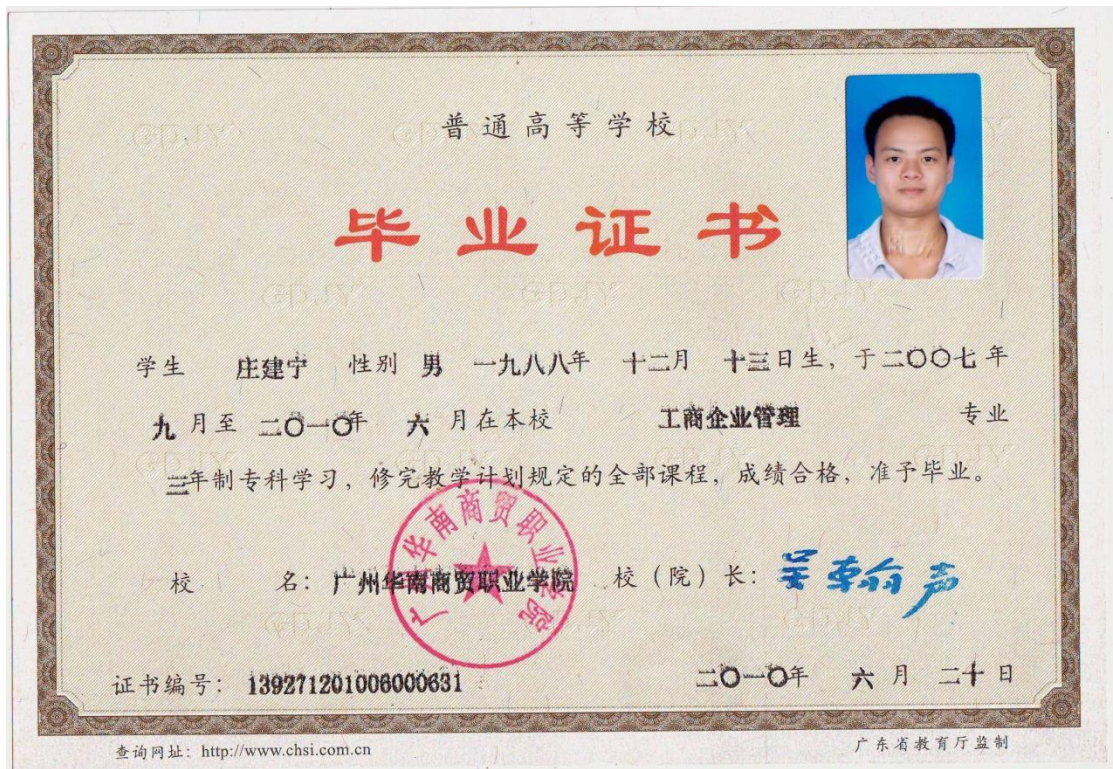 普通高等学校
毕业证书
学生 庄建宁 性别 男 一九八八年 十二月 十三日生，于二〇〇七年
九月至 二〇一〇年 六月在本校 工商企业管理 专业
三年制专科学习，修完教学计划规定的全部课程，成绩合格，准予毕业。
广州华南商贸职业学院
校 名：广州华南商贸职业学院 校（院）长：吴翰声
证书编号：139271201006000631 二〇一〇年 六月 二十日
查询网址：http://www.chsi.com.cn 广东省教育厅监制